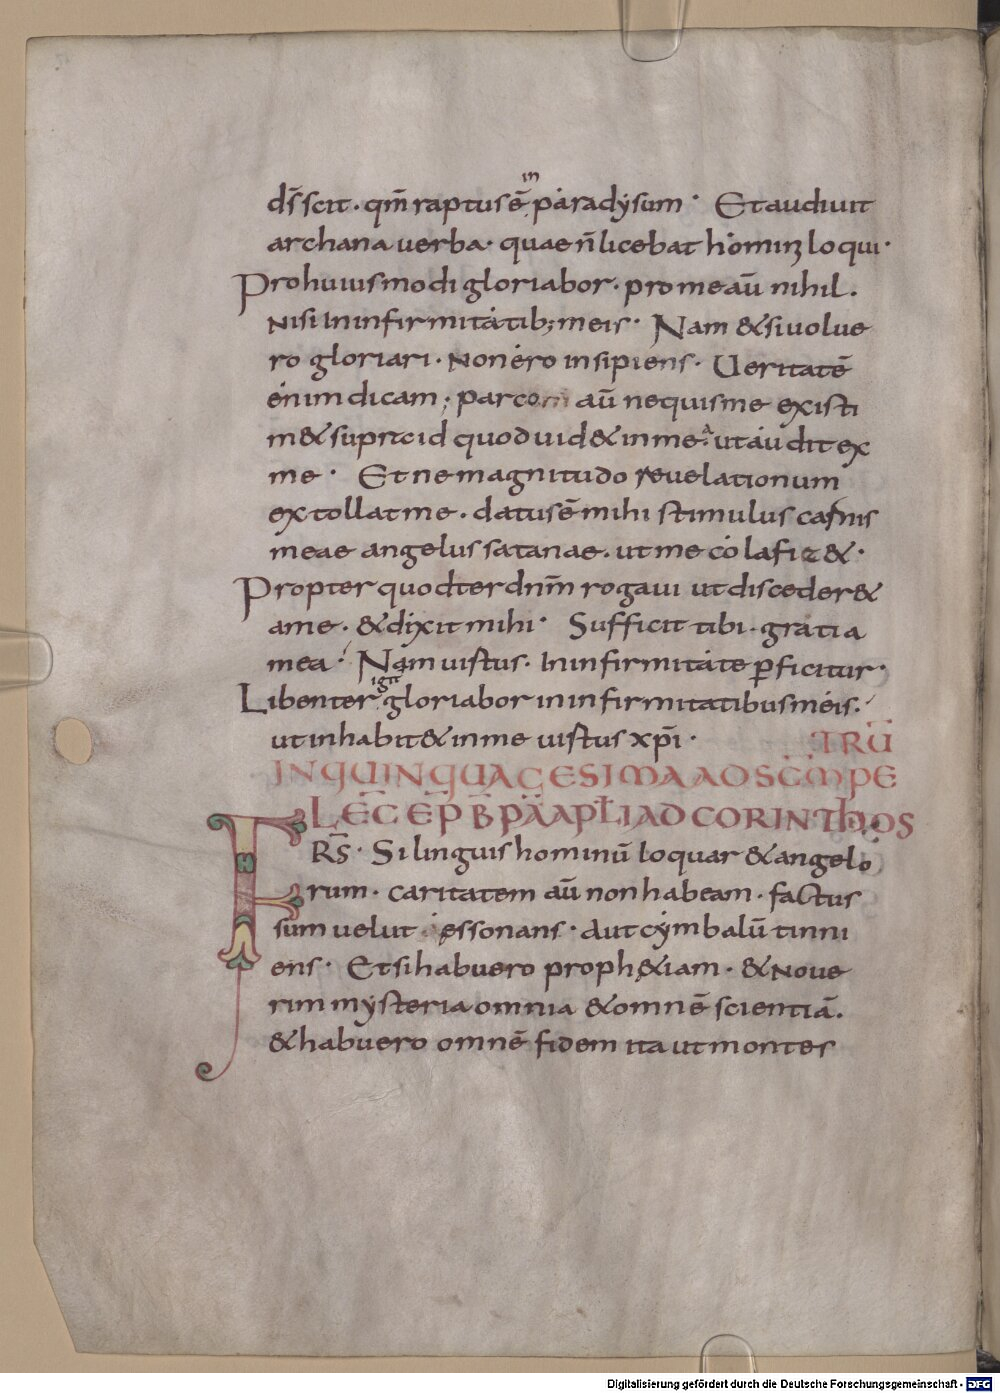 ds̄ scit · qm̄ raptus ē in paradysum · Et audiuit
archana uerba · quae n̄ licebat hominꝫ loqui ·
Pro huiusmodi gloriabor · pro me aū nihil ·
Nisi In infirmitatib; meis · Nam & si uolue
ro gloriari · Non ero insipiens · Ueritatē
enim dicam ; parcom aū nequis me existi
m& supra id quod uid& in me · aut audit ex
me · Et ne magnitudo reuelationum
extollat me · datus ē mihi stimulus carnis
meae angelus satanae · ut me colafiz& ·
Propter quod ter dnm̄ rogaui ut disceder&
a me · & dixit mihi · Sufficit tibi · gratia
mea · Nam uirtus · In infirmitate ꝑficitur ·
Libenter igit̄ gloriabor in infirmitatibus meis ·
ut inhabit& in me uirtus xp̄i · TRŪ
IN QUINQUAGESIMA AD SC̄M PE
LEC̄ EP̄ B̄ PĀ APL̄I AD CORINTHIOS
FRS̄ · Si linguis hominū loquar & angelo
rum · caritatem aū non habeam · factus
sum uelut ęs sonans · Aut cymbalū tinni
ens · Et si habuero proph&iam · & Noue
rim mysteria omnia & omnē scientiā ·
& habuero omnē fidem ita ut montes
Digitalisierung gefördert durch die Deutsche Forschungsgemeinschaft - DFG